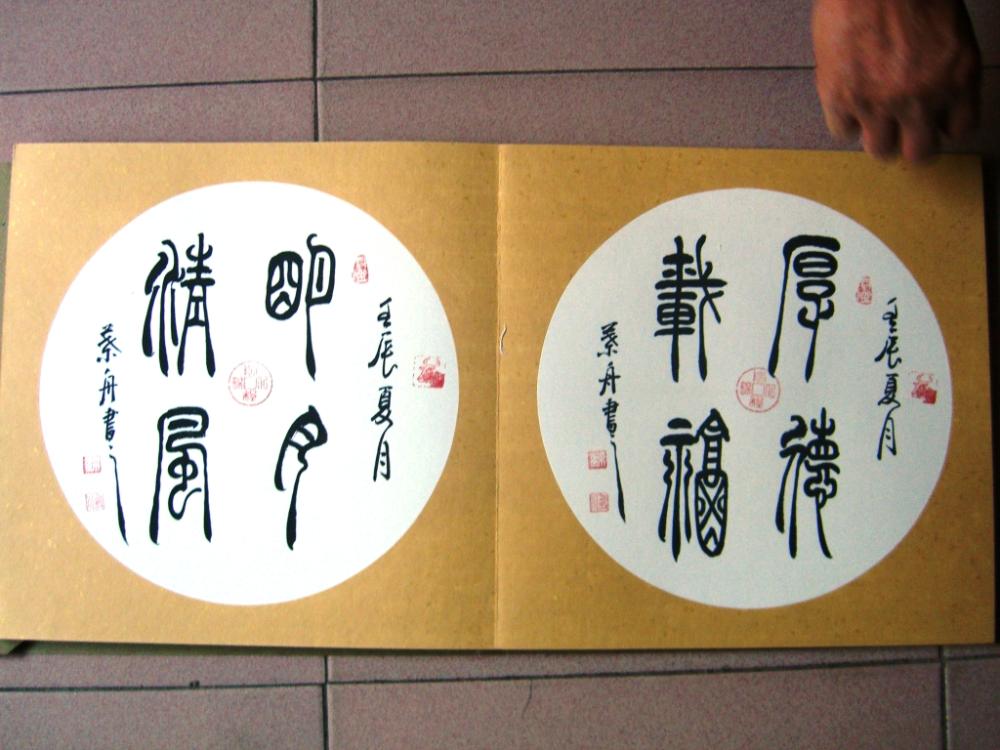 壬辰夏月
厚德
載福
舟書
壬辰夏月
明月
清風
舟書